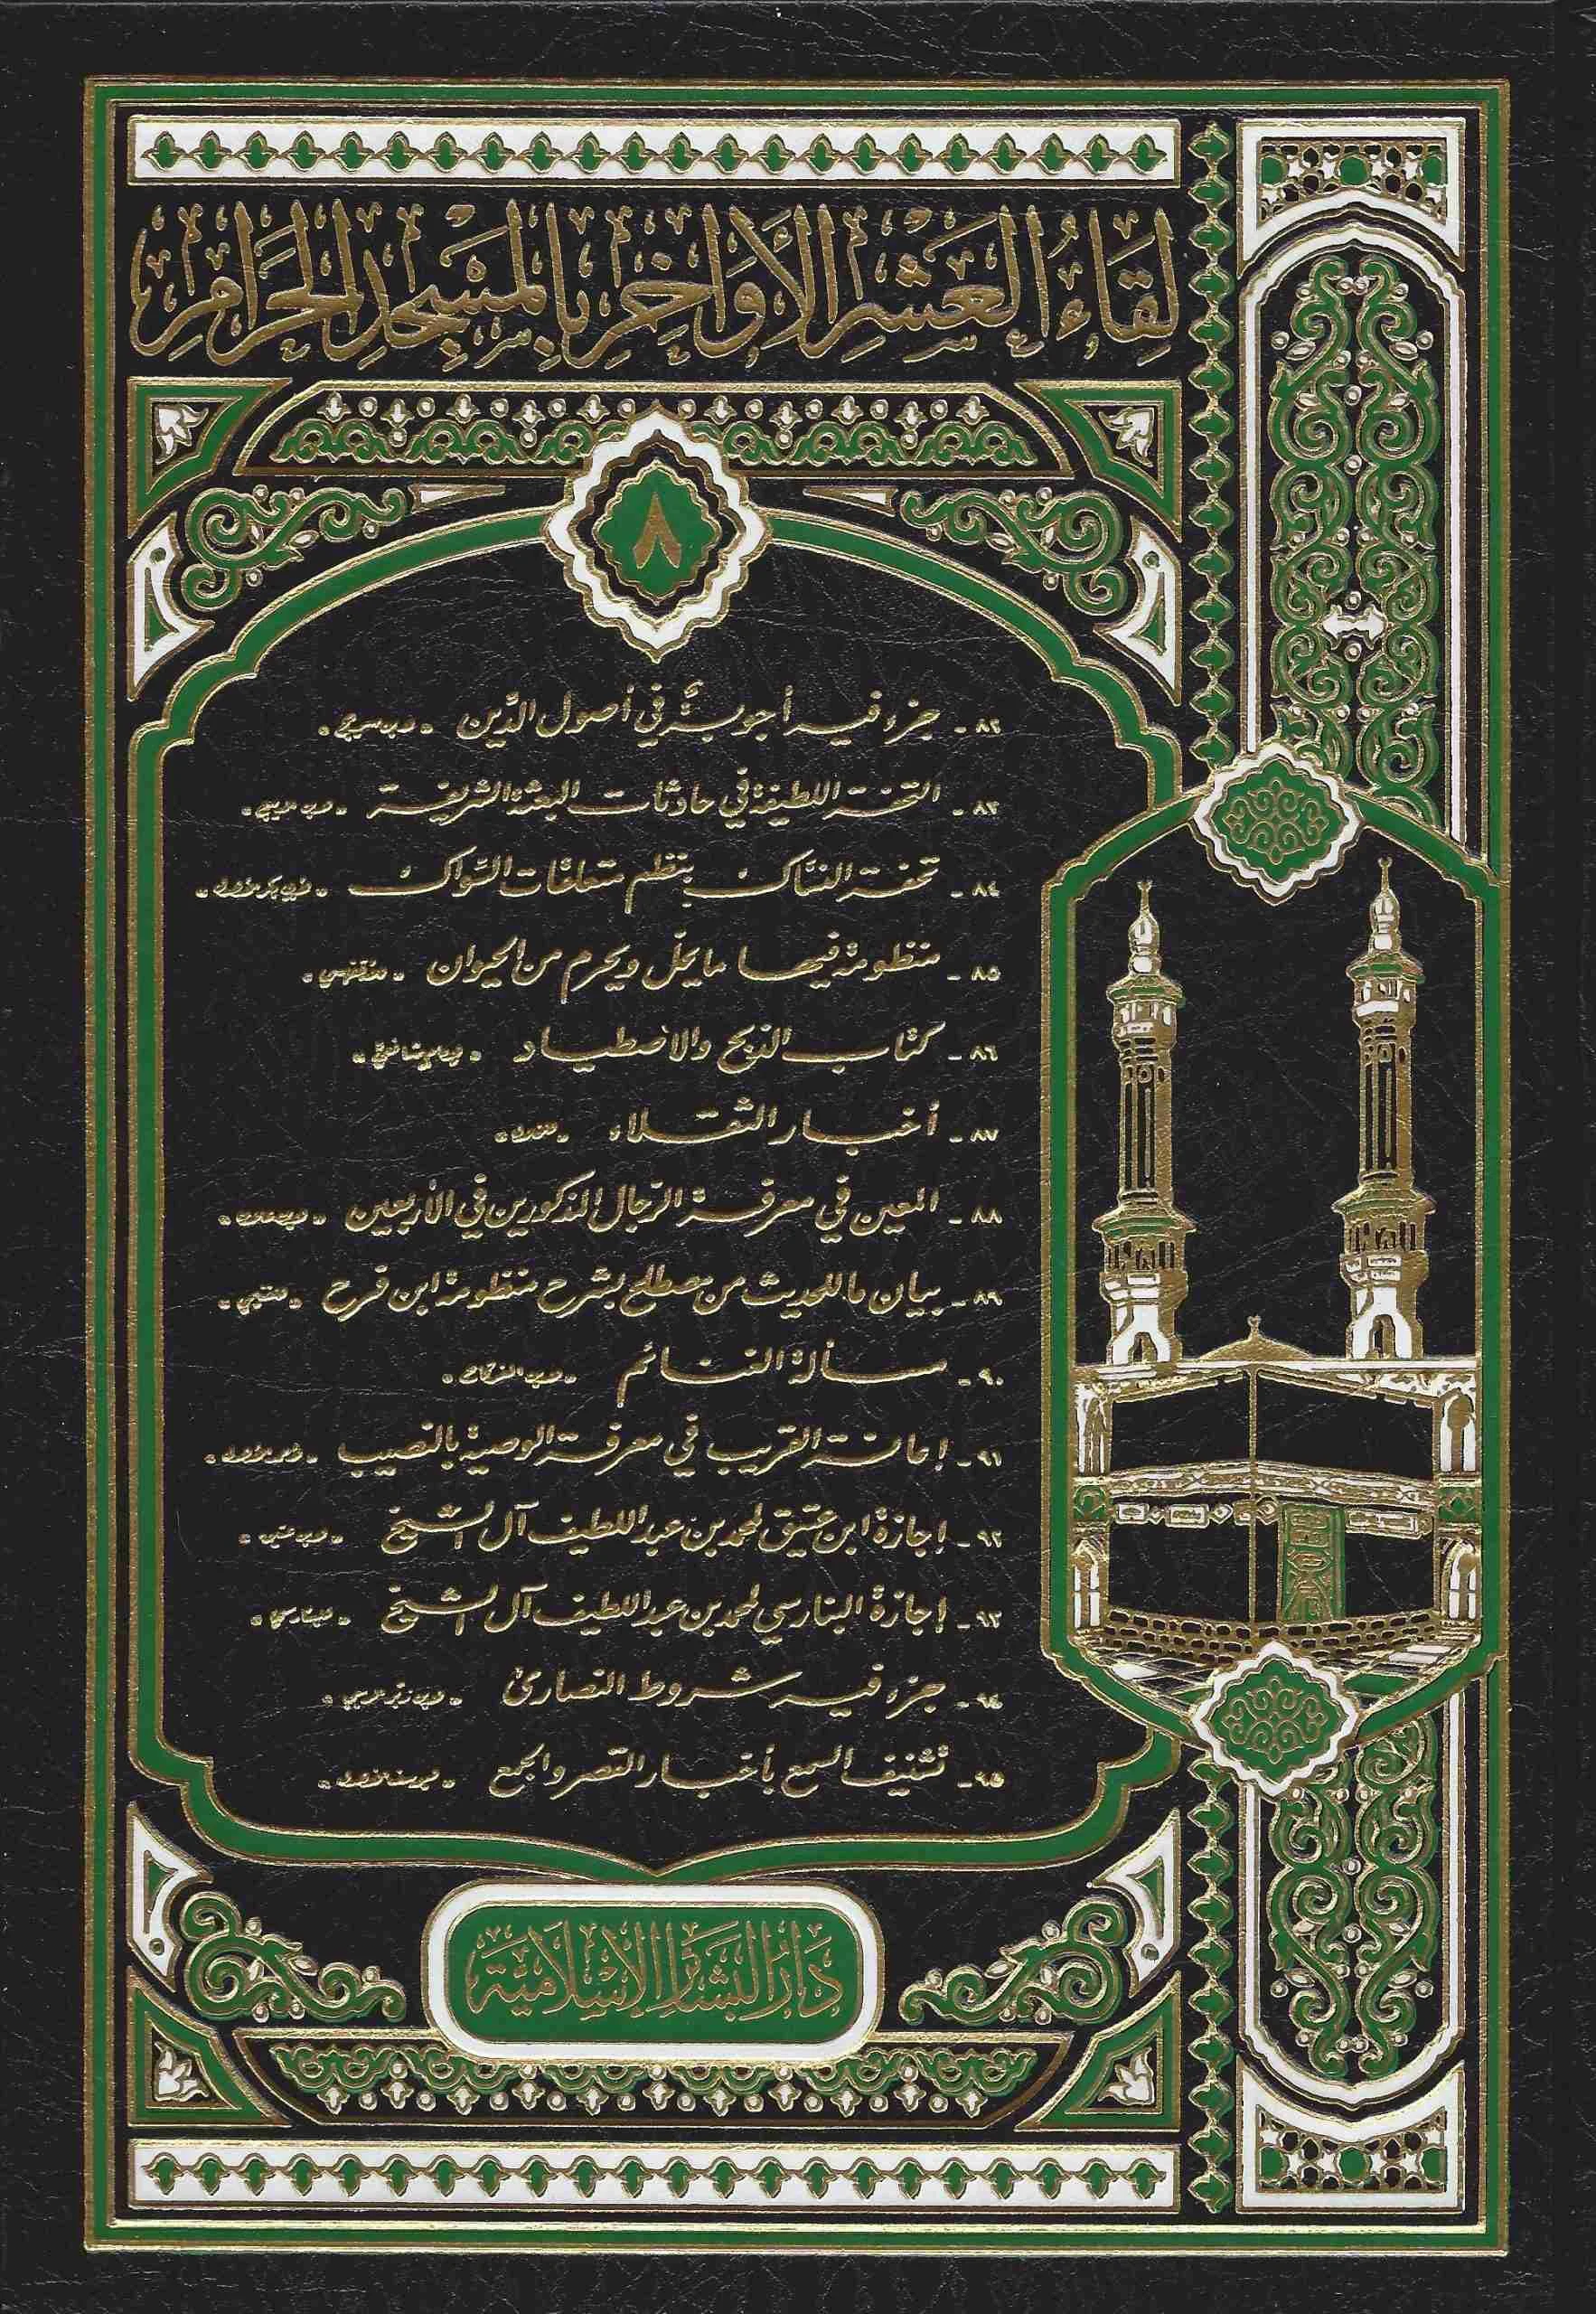 لِقَاءُ العَشْرِ الأَوَاخِرِ بِالمَسْجِدِ الحَرَامِ
٨
٨٢ - جزء فيه أجوبةٌ في أصول الدّين - لابن سريج -
٨٣ - التحفة اللطيفة في حادثات البعثة الشريفة
٨٤ - تحفة النسّاك بنظم متعلقات السّواك
٨٥ - منظومة فيها ما يحلّ ويحرم من الحيوان
٨٦ - كتاب الذبح والاصطياد
٨٧ - أخبار الثقلاء
٨٨ - المعين في معرفة الرّجال المذكورين في الأربعين
٨٩ - بيان ما للحديث من مصطلح بشرح منظومة ابن فرح
٩٠ - مسألة التنائم
٩١ - إعانة القريب في معرفة الوصية بالنصيب
٩٢ - إجازة ابن عتيق لمحمد بن عبد اللطيف آل الشيخ - لابن عتيق -
٩٣ - إجازة البنارسي لمحمد بن عبد اللطيف آل الشيخ - للبنارسي -
٩٤ - جزء فيه شروط النصارى - لابن زبر الربعي -
٩٥ - تشنيف السمع بأخبار القصر والجمع
دَارُ البَشَائِرِ الإِسْلَامِيَّة